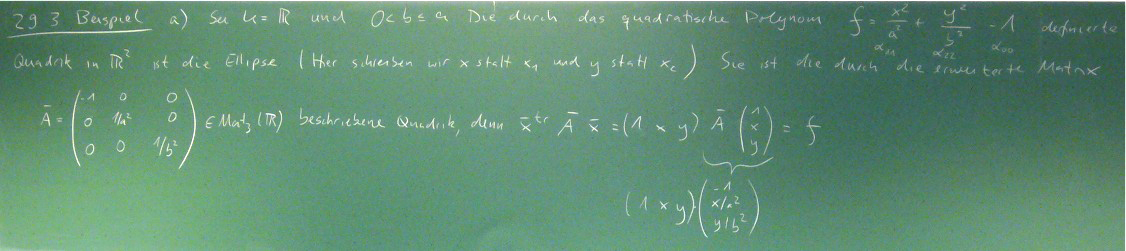 29.3 Beispiel a) Sei K = ℝ und 0 < b ≤ a Die durch das quadratische Polynom f = x²/a² + y²/b² - 1 definierte
α₁₁ α₂₂ α₀₀
Quadrik in ℝ² ist die Ellipse (Hier schreiben wir x statt x₁ und y statt x₂) Sie ist die durch die erweiterte Matrix
Ā = ( -1 0 0 ; 0 1/a² 0 ; 0 0 1/b² ) ∈ Mat₃(ℝ) beschriebene Quadrik, denn x̄ᵗʳ Ā x̄ = (1 x y) Ā ( 1 ; x ; y ) = f
(1 x y)·( -1 ; x/a² ; y/b² )